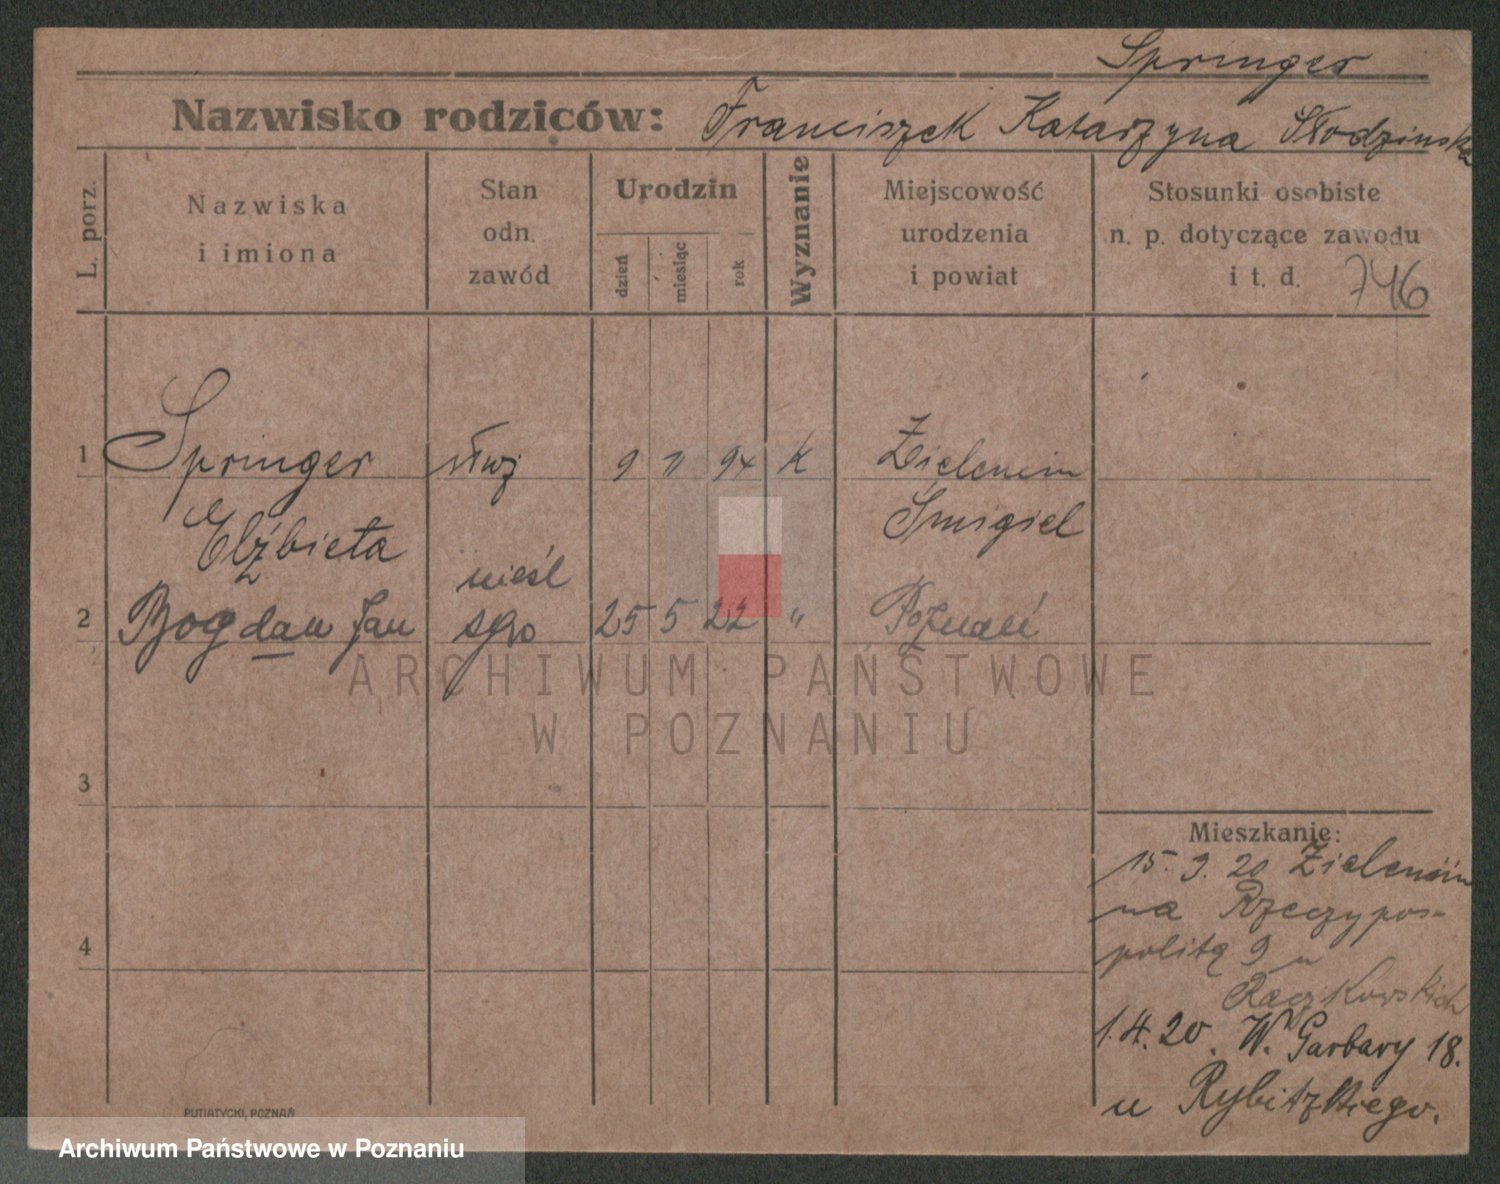 Springer
Nazwisko rodziców: Franciszek Katarzyna Słodzinska
L. porz.
Nazwiska
i imiona
Stan
odn.
zawód
Urodzin
dzień
miesiąc
rok
Wyznanie
Miejscowość
urodzenia
i powiat
Stosunki osobiste
n. p. dotyczące zawodu
i t. d. 746
1 Springer służ 9 11 94 K Zielencin
Elżbieta Śmigiel
nieśl
2 Bogdan Jan 25 5 22 " Poznań
3
4
Mieszkanie:
15. 9. 20 Zielencin
na Rzeczypos-
politą 9 u
Raczkowskich
1.4.20. W. Garbary 18.
u
PUTIATYCKI, POZNAŃ
ARCHIWUM PAŃSTWOWE
W POZNANIU
Archiwum Państwowe w Poznaniu